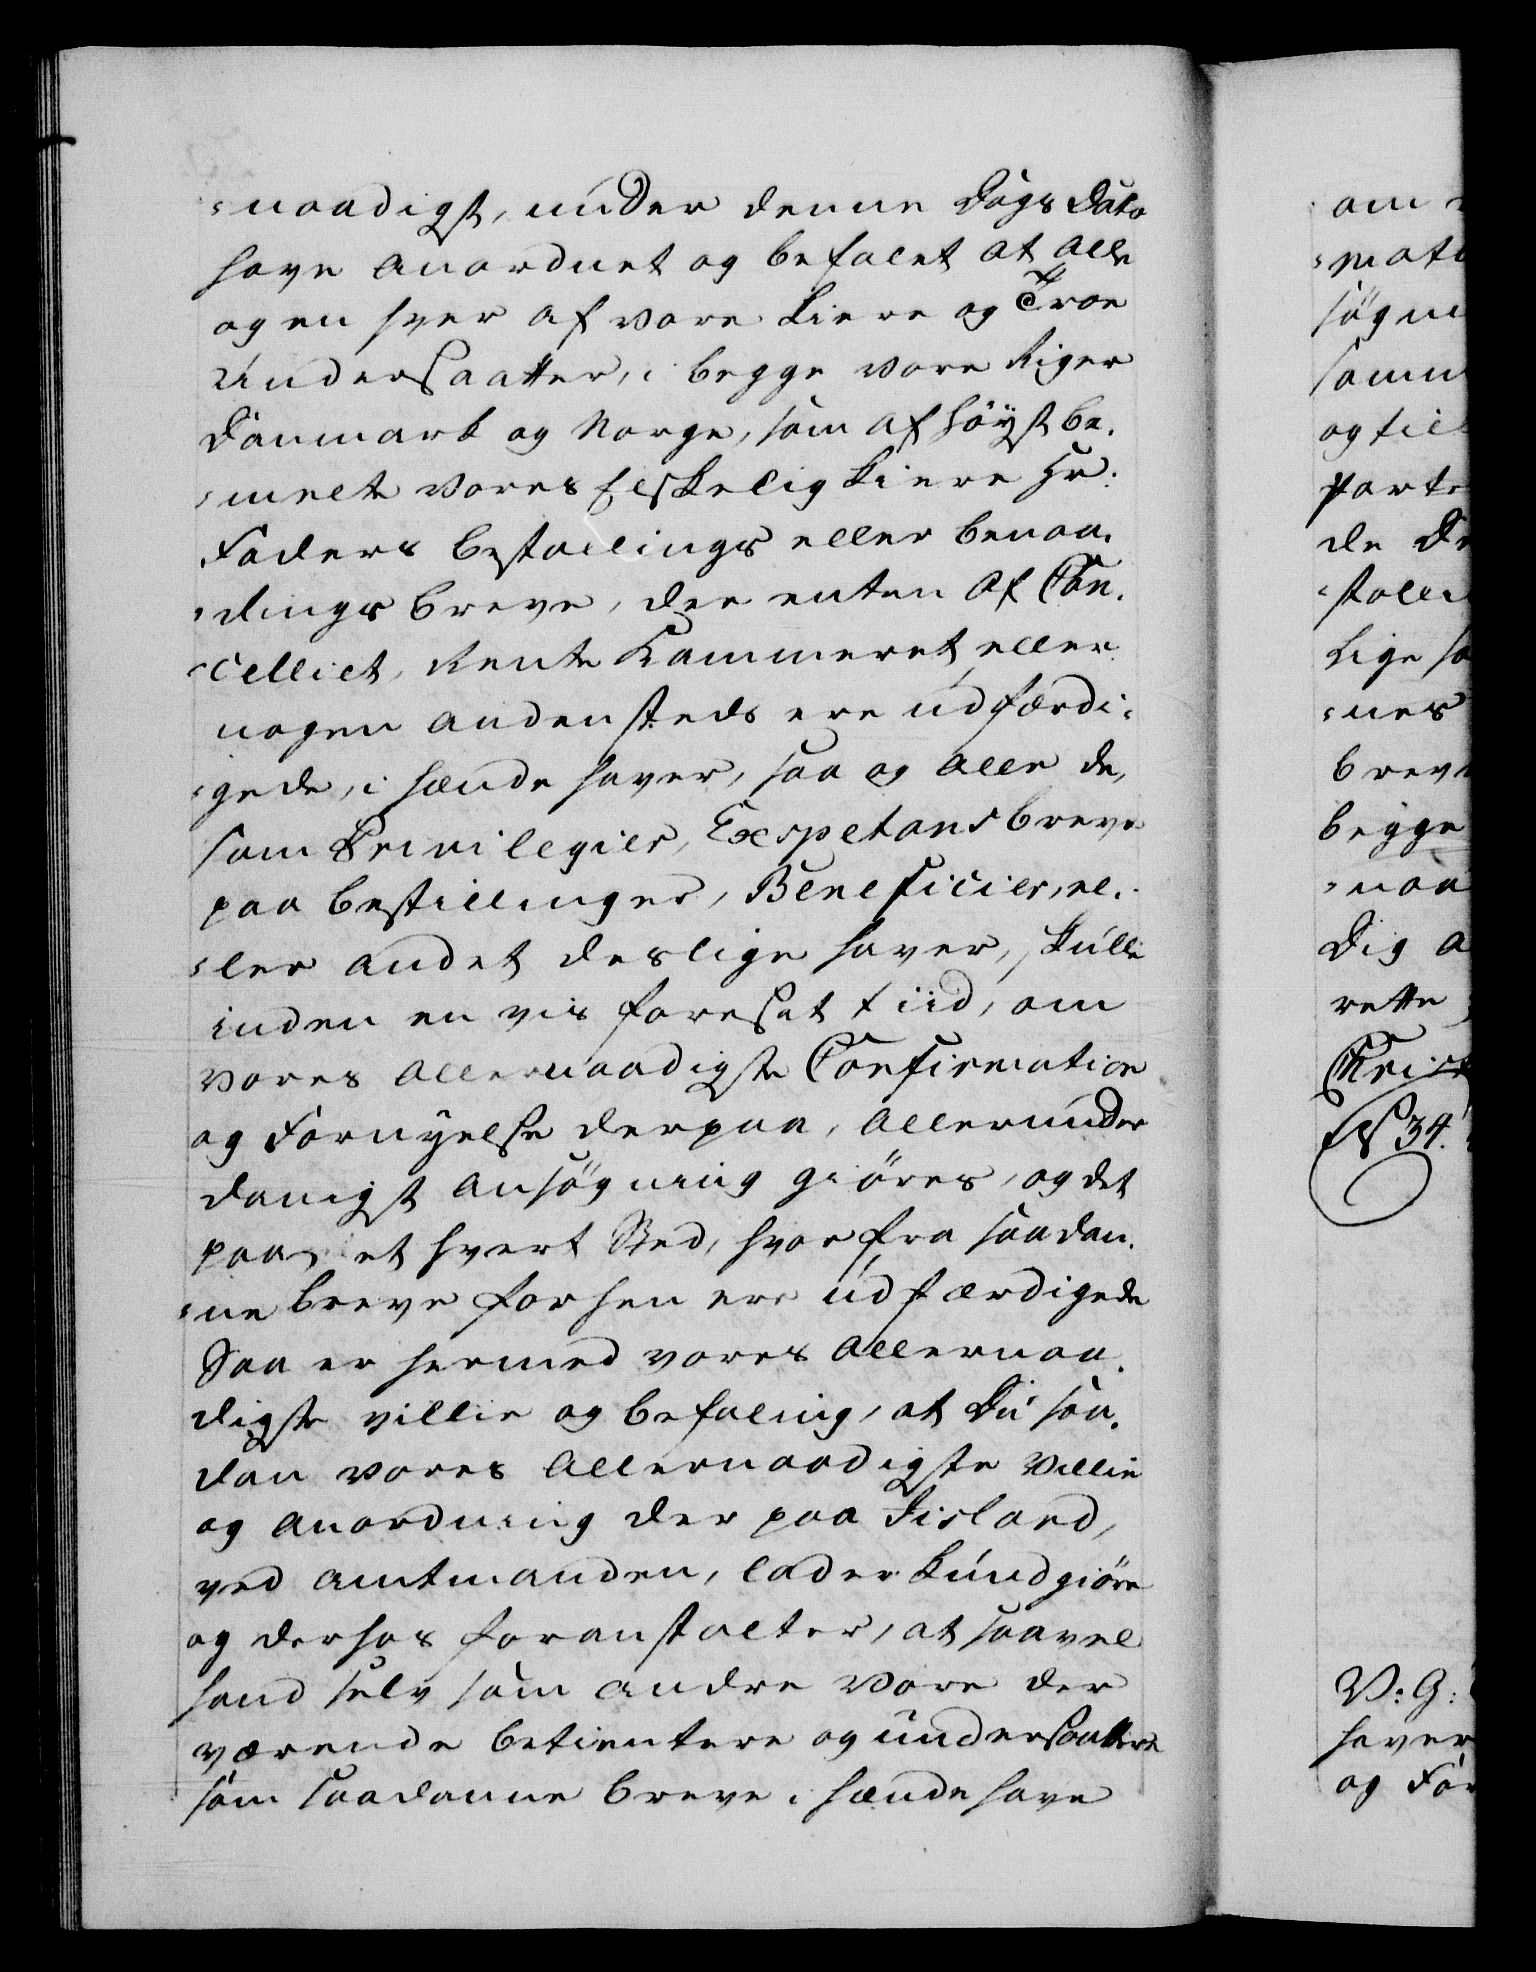 =naadigst, under denne Dags Dato
have anordnet og befalet at alle
og en hver af vore kiere og Troe
Undersaatter, i begge vore Riger
Danmark og Norge, som af höÿstbe.
=melte vores Elskelig kiere Hr:
Faders bestallings eller benaa.
=dings breve, der enten af Can.
=celliet, Rente Kammeret, eller
nogen andensteds ere udfærdi=
=gede, i hænde haver, saa og alle de,
som Privilegier, Exspetans breve
paa bestillinger, Beneficier, el.
=ler andet deslige haver, skulle
inden en vis foresat tiid, om
vores allernaadigste Confirmation
og Fornyelse derpaa, allerunder
danigst ansøgning giöres, og det
paa et hvert Sted, hvor fra saadan.
=ne breve forhen ere udfærdigede
Saa er hermed vores allernaa.
digste villie og befaling, at Du saa.
dan vores allernaadigste Villie
og anordning der paa Iisland,
ved amtmanden, lader kundgiöre
og derhos foranstalter, at saavel
hand selv som andre vore der
værende betientere og undersaattere
som saadanne breve i hænde have
om
=mati
søgni
samm
og till
parte
de
=stalli
Lige sa
=nes
brev
begge
=naa
Dig a
rette
Christ
34.
V: G:
haver
og For